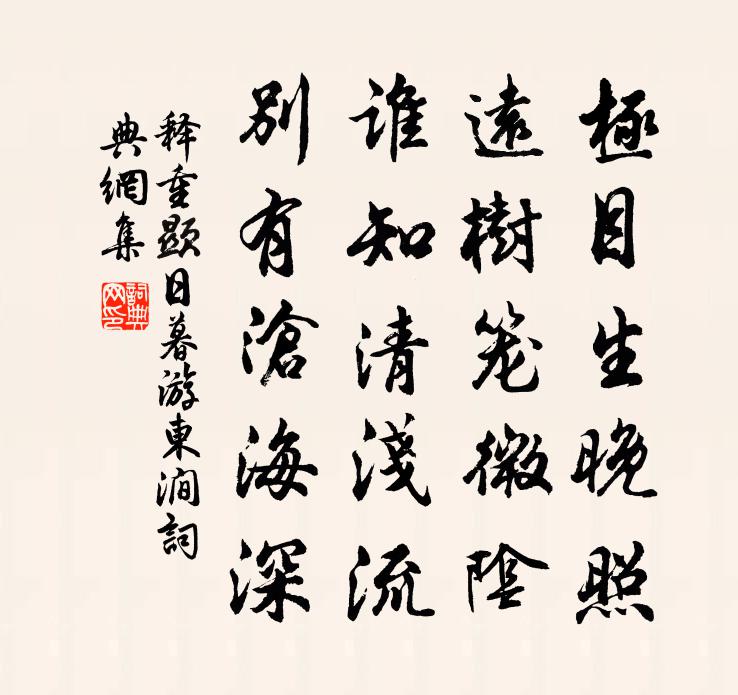 極目生晚照
遠樹笼微陰
谁知清淺流
別有滄海深
释重顯日暮游東澗詞
典網集
詞典網印